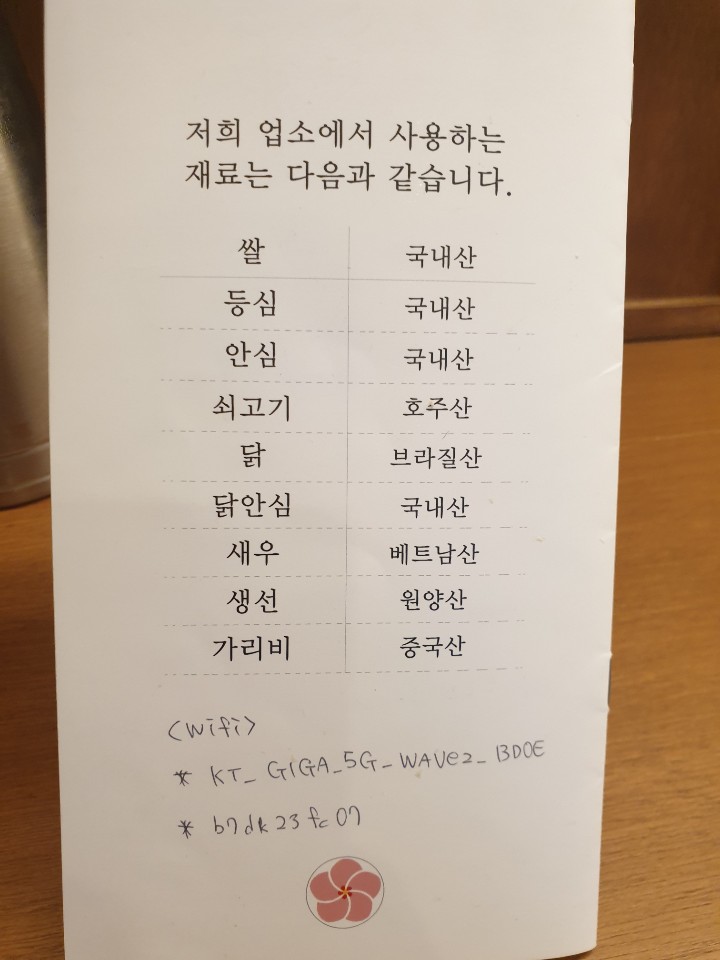 저희 업소에서 사용하는
재료는 다음과 같습니다.
쌀 국내산
등심 국내산
안심 국내산
쇠고기 호주산
닭 브라질산
닭안심 국내산
새우 베트남산
생선 원양산
가리비 중국산
<wifi>
* KT_GIGA_5G_WAVe2_BD0E
* b7dk23fc07